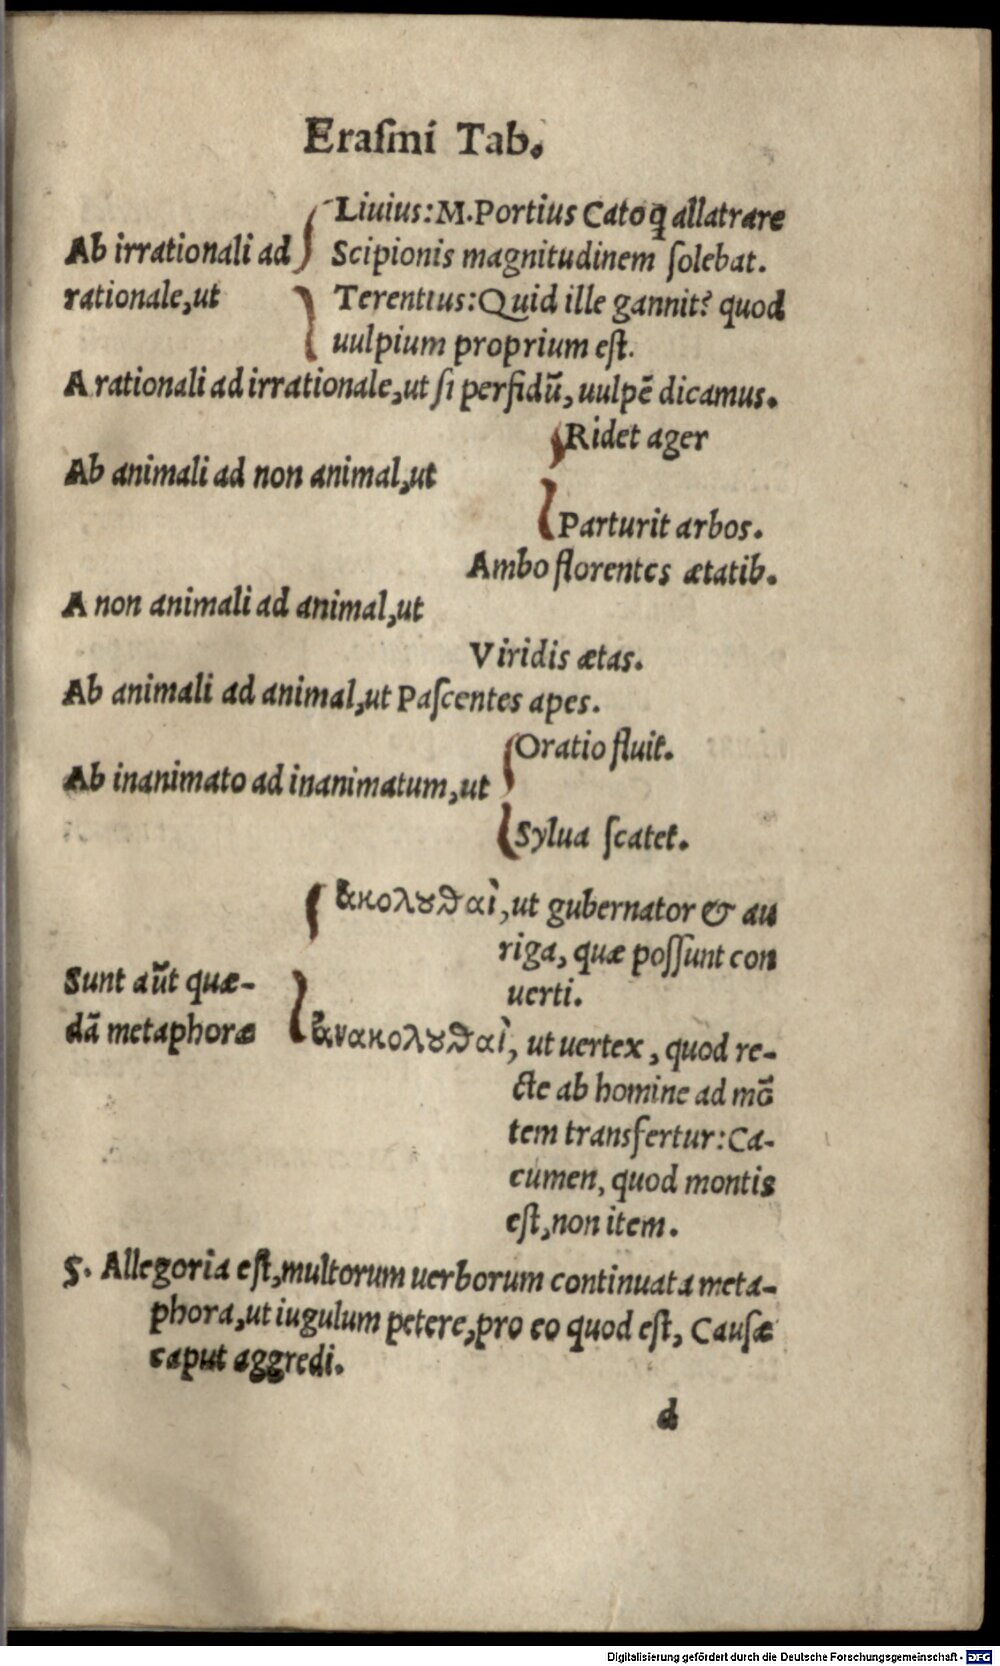 Eraſmi Tab.
Liuius: M. Portius Cato q̃ allatrare
Ab irrationali ad Scipionis magnitudinem ſolebat.
rationale, ut Terentius: Quid ille gannit? quod
uulpium proprium eſt.
A rationali ad irrationale, ut ſi perfidũ, uulpẽ dicamus.
Ridet ager
Ab animali ad non animal, ut
Parturit arbos.
Ambo florentes ætatib.
A non animali ad animal, ut
Viridis ætas.
Ab animali ad animal, ut Paſcentes apes.
Oratio fluit.
Ab inanimato ad inanimatum, ut
Sylua ſcatet.
ἀκολȣθαὶ, ut gubernator & au
riga, quæ poſſunt con
Sunt aũt quæ-
uerti.
dã metaphoræ
ἀνακολȣθαὶ, ut uertex, quod re-
cte ab homine ad mõ
tem transfertur: Ca-
cumen, quod montis
eſt, non item.
5. Allegoria eſt, multorum uerborum continuata meta-
phora, ut iugulum petere, pro eo quod eſt, Cauſæ
caput aggredi.
d
Digitalisierung gefördert durch die Deutsche Forschungsgemeinschaft - DFG